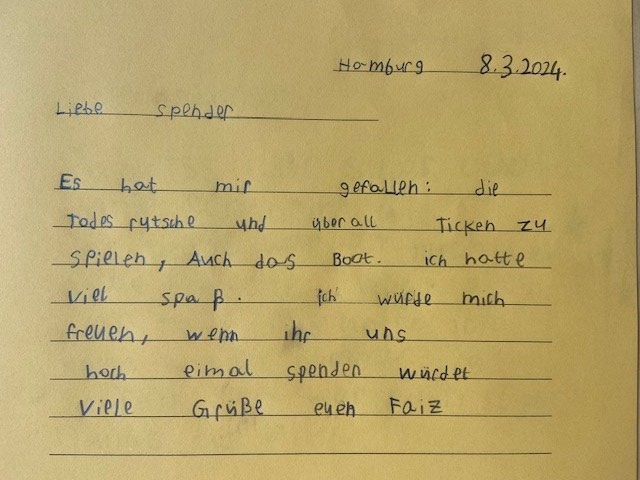 Hamburg 8.3.2024.
Liebe spender
Es hat mir gefallen: die
Todes rutsche und überall Ticken zu
spielen, Auch das Boot. ich hatte
viel spaß. ich würde mich
freuen, wenn ihr uns
noch eimal spenden würdet
Viele Grüße euen Faiz